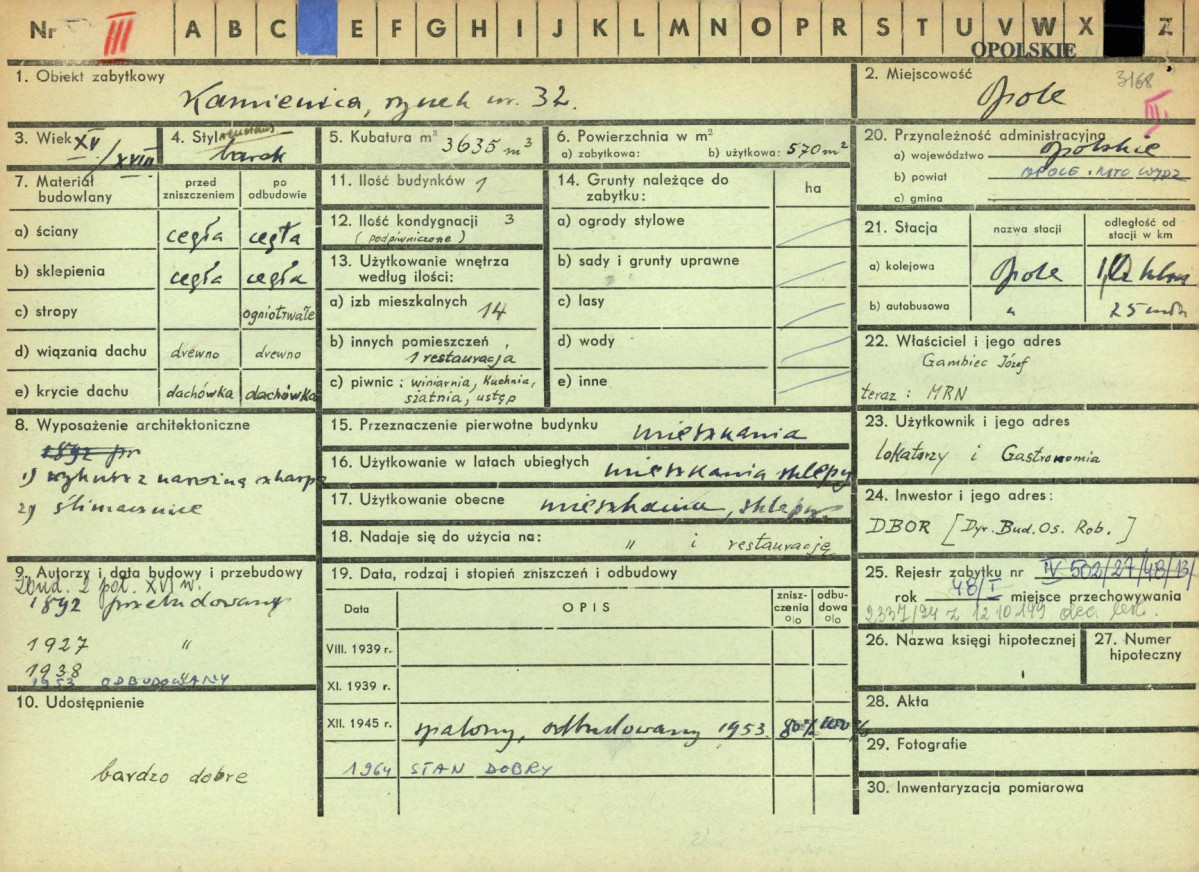 Nr III A B C E F G H I J K L M N O P R S T U V W X Z
OPOLSKIE
1. Obiekt zabytkowy
Kamienica, rynek nr. 32.
2. Miejscowość 3168
Opole
III
3. Wiek XV/XVIII
4. Styl renesans
barok
5. Kubatura m³ 3635 m³
6. Powierzchnia w m²
a) zabytkowa: b) użytkowa: 570 m²
20. Przynależność administracyjna
a) województwo opolskie
b) powiat OPOLE
c) gmina
7. Materiał budowlany
przed zniszczeniem
po odbudowie
a) ściany cegła cegła
b) sklepienia cegła cegła
c) stropy ogniotrwałe
d) wiązania dachu drewno drewno
e) krycie dachu dachówka dachówka
11. Ilość budynków 1
12. Ilość kondygnacji 3
(podpiwniczone)
13. Użytkowanie wnętrza
według ilości:
a) izb mieszkalnych 14
b) innych pomieszczeń
1 restauracja
c) piwnic: winiarnia, Kuchnia,
szatnia, ustęp
14. Grunty należące do
zabytku:
ha
a) ogrody stylowe
b) sady i grunty uprawne
c) lasy
d) wody
e) inne
21. Stacja
nazwa stacji
odległość od
stacji w km
a) kolejowa Opole
b) autobusowa "
22. Właściciel i jego adres
Gambiec Józef
teraz: MRN
8. Wyposażenie architektoniczne
1892
1) wykusz z narożną skarpą
2)
15. Przeznaczenie pierwotne budynku mieszkania
16. Użytkowanie w latach ubiegłych mieszkania sklepy
17. Użytkowanie obecne mieszkania, sklepy
18. Nadaje się do użycia na: " i restaurację
23. Użytkownik i jego adres
Lokatorzy i Gastronomia
24. Inwestor i jego adres:
DBOR [Dyr. Bud. Os. Rob.]
9. Autorzy i data budowy i przebudowy
2 poł. XVI w.
1892 przebudowany
1927 "
1938 "
1953 ODBUDOWANY
19. Data, rodzaj i stopień zniszczeń i odbudowy
Data
OPIS
znisz-
czenia
o/o
odbu-
dowa
o/o
VIII. 1939 r.
XI. 1939 r.
XII. 1945 r. spalony, odbudowany 1953. 80% 100%
1964 STAN DOBRY
25. Rejestr zabytku nr IV 502/27/48/13/
rok 48/I miejsce przechowywania
2337/94 z 12 10 199
26. Nazwa księgi hipotecznej
27. Numer
hipoteczny
10. Udostępnienie
bardzo dobre
28. Akta
29. Fotografie
30. Inwentaryzacja pomiarowa